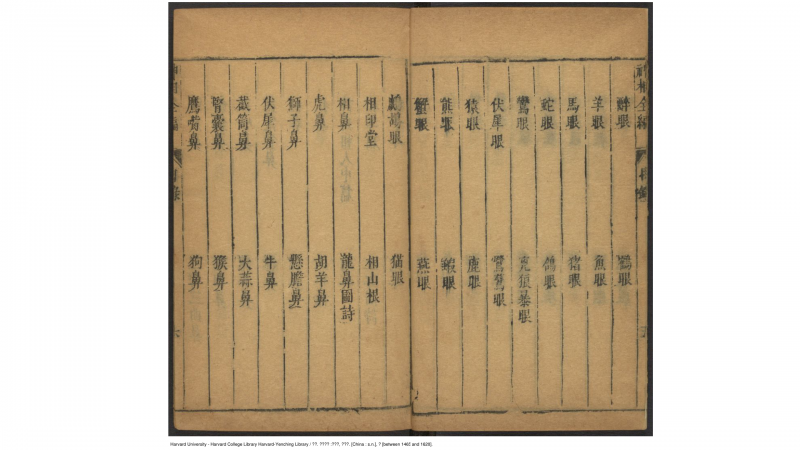 神相全編
目錄
醉眼
鶴眼
羊眼
魚眼
馬眼
猪眼
蛇眼
鴿眼
鸞眼
虎狼暴眼
伏犀眼
鴛鴦眼
猿眼
鹿眼
熊眼
蝦眼
蟹眼
燕眼
鷓鴣眼
猫眼
相印堂
相山根
相鼻
龍鼻圖詩
虎鼻
胡羊鼻
獅子鼻
懸膽鼻
伏犀鼻
牛鼻
截筒鼻
大蒜鼻
腎囊鼻
猴鼻
鷹嘴鼻
狗鼻
六
Harvard University - Harvard College Library Harvard-Yenching Library / ??. ????. ???, ???. [China : s.n.], ? [between 1465 and 1620].